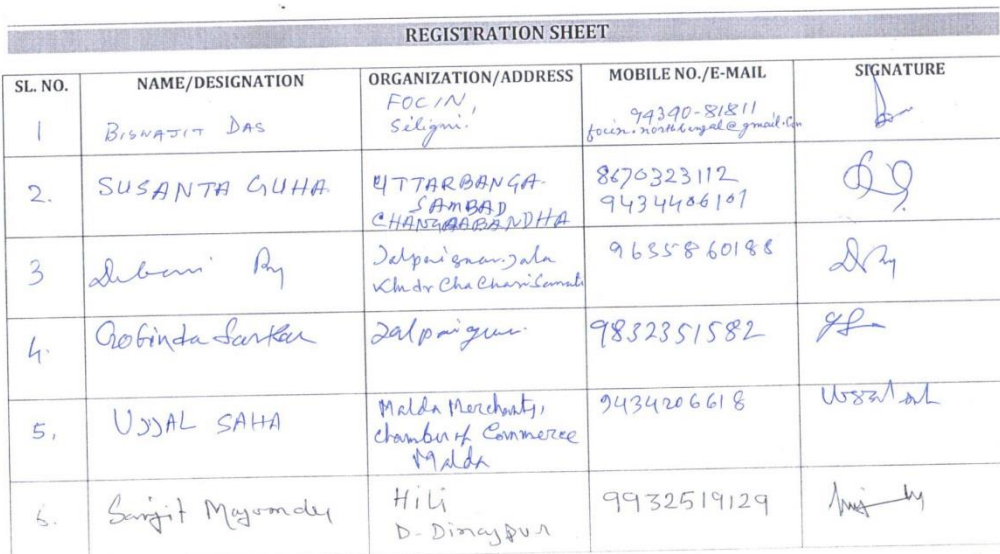 REGISTRATION SHEET
SL. NO. NAME/DESIGNATION ORGANIZATION/ADDRESS MOBILE NO./E-MAIL SIGNATURE
1 BISWAJIT DAS FOCIN, Siligni. 94340-81811 focin.northbengal@gmail.com
2. SUSANTA GUHA UTTARBANGA SAMBAD CHANGRABANDHA 8670323112 9434406107
3 Debari Ry Jalpaiguri Jala Khudr Cha Chasi Samiti 9635860188
4. Gobinda Sarkar Jalpaiguri 9832351582
5, UJJAL SAHA Malda Merchants, Chamber of Commerce Malda 9434206618
6. Sanjit Majumder Hili D-Dinajpur 9932519129